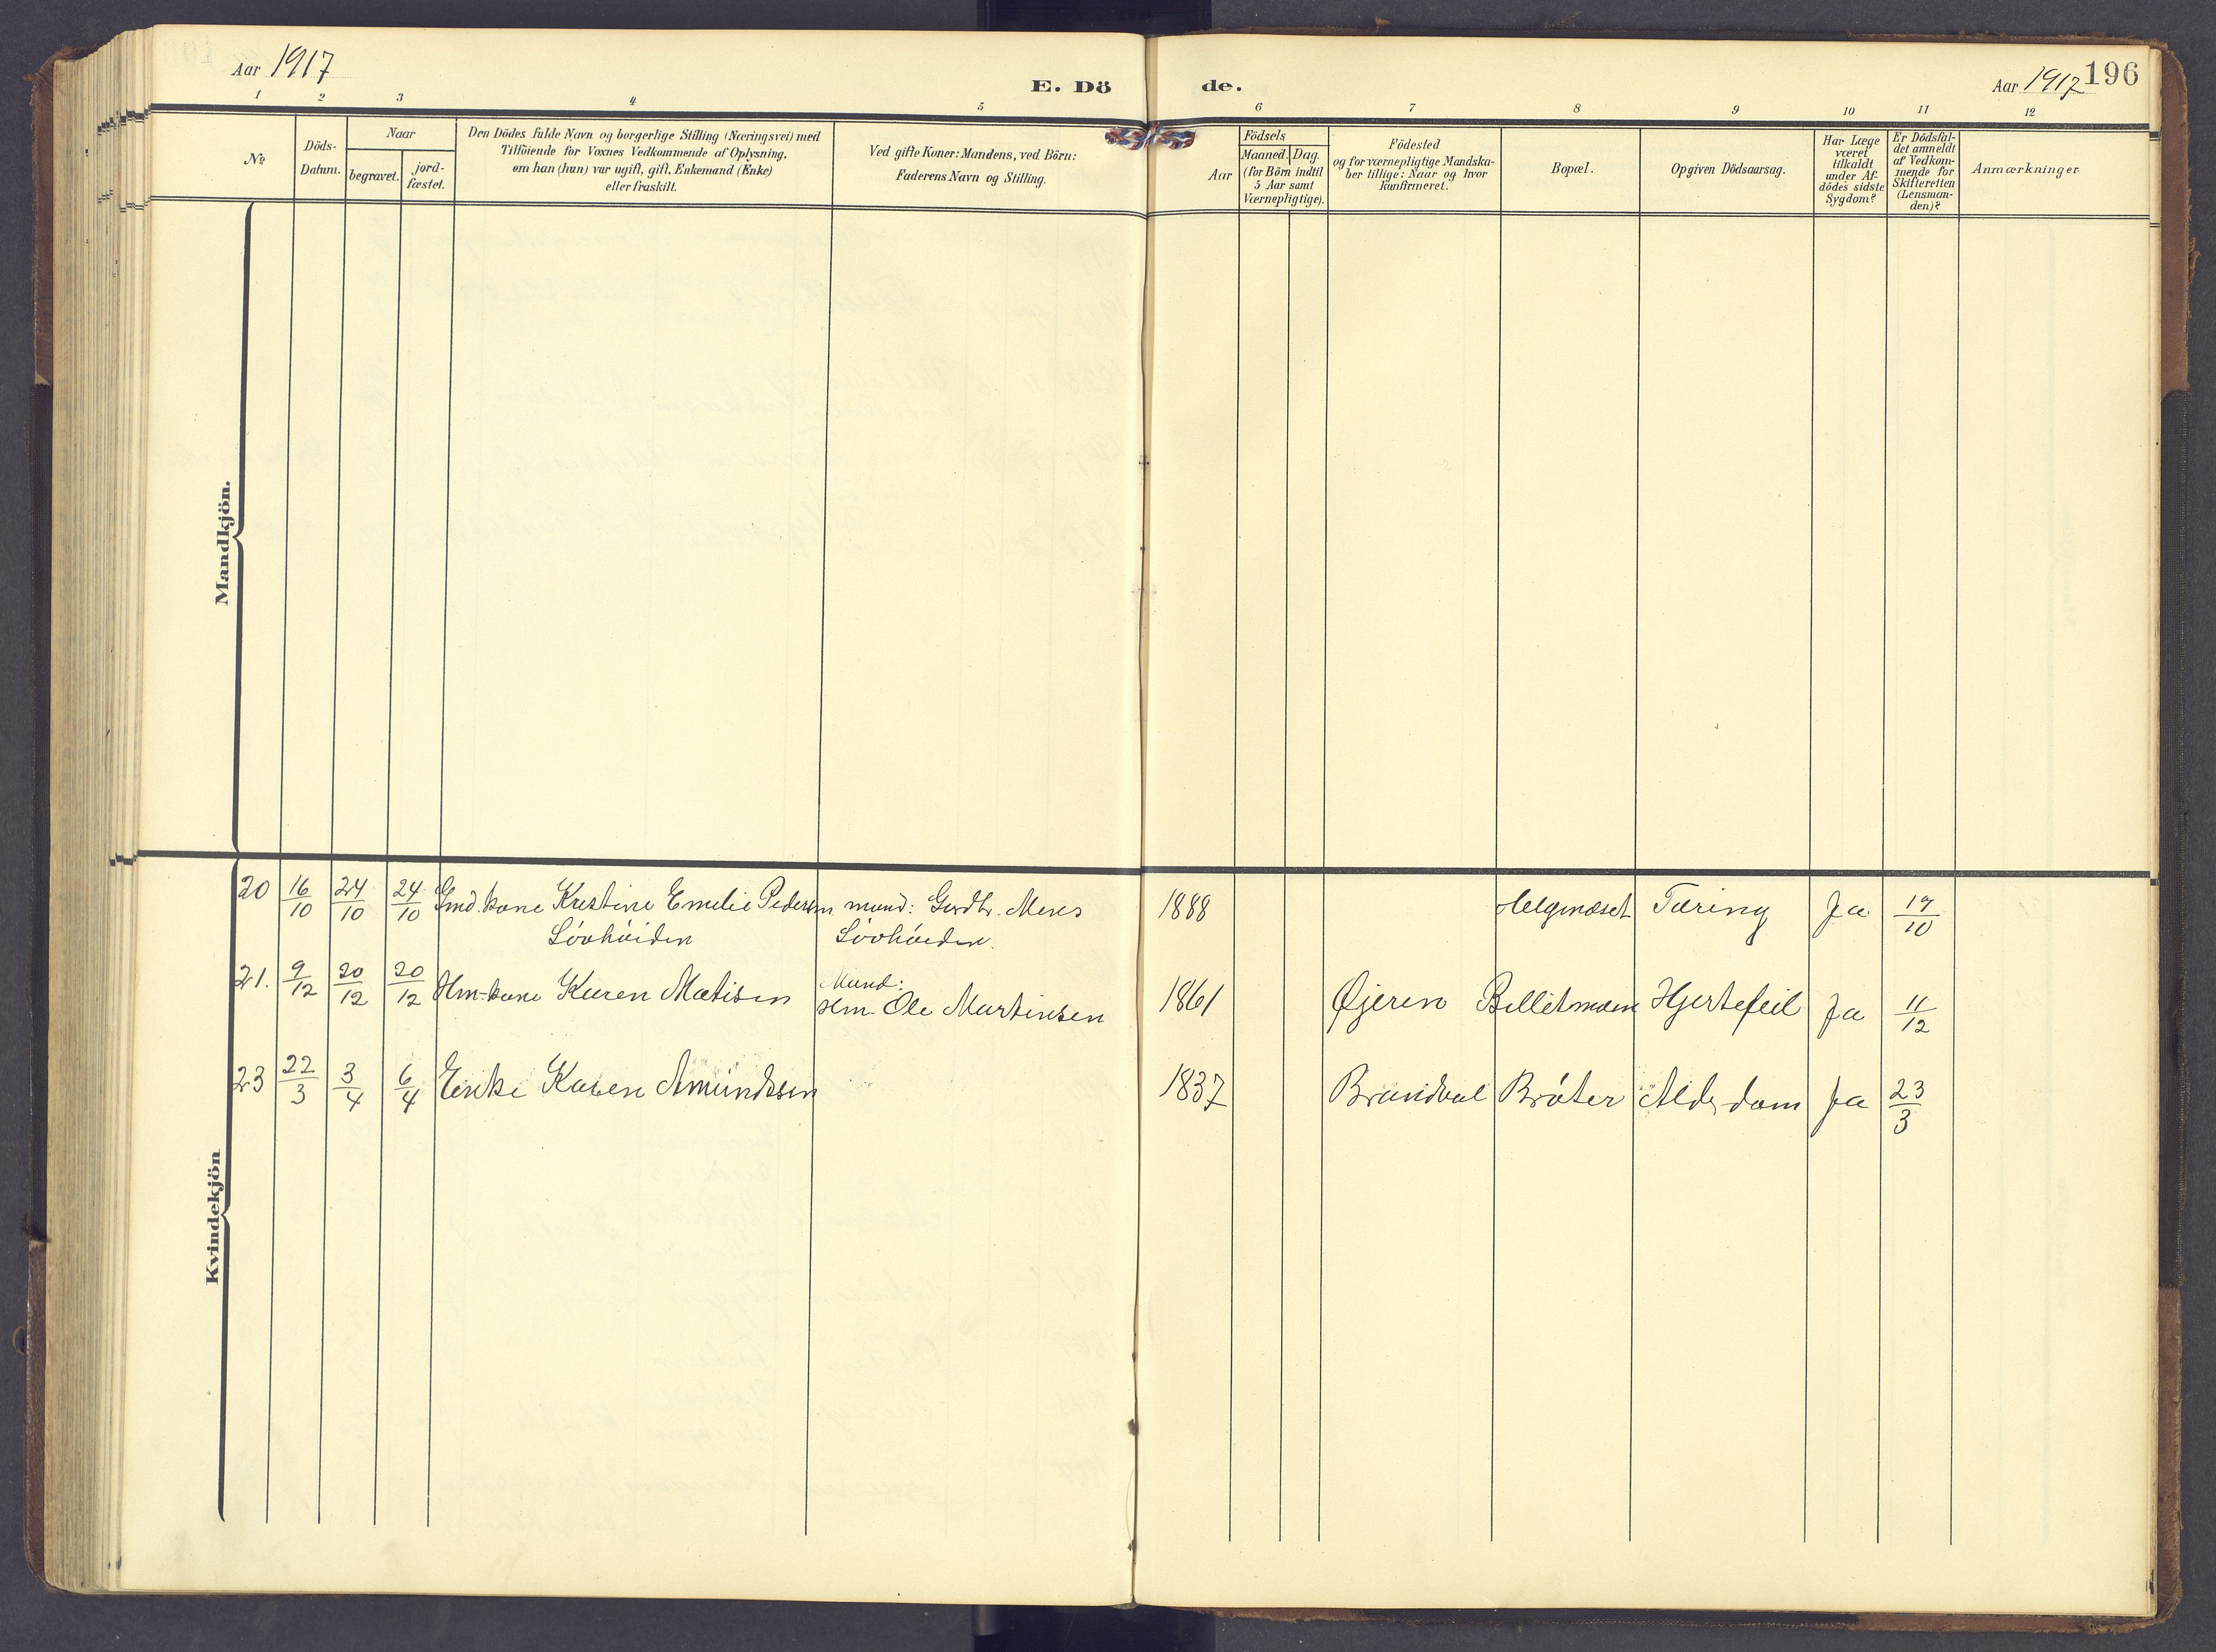 Aar 1917
E. Dö
de.
Aar 1917
196
1 2 3 4 5 6 7 8 9 10 11 12
№
Döds-
Datum.
Naar
begravet.
jord-
fæstet.
Den Dödes fulde Navn og borgerlige Stilling (Næringsvei) med
Tilföiende for Voxnes Vedkommende af Oplysning,
om han (hun) var ugift, gift, Enkemand (Enke)
eller fraskilt.
Ved gifte Koner: Mandens, ved Börn:
Faderens Navn og Stilling.
Aar
Födsels
Maaned. Dag.
(for Börn indtil
5 Aar samt
Værnepligtige).
Födested
og for værnepligtige Mandska-
ber tillige: Naar og hvor
konfirmeret.
Bopæl.
Opgiven Dödsaarsag.
Har Læge
været
tilkaldt
under Af-
dödes sidste
Sygdom?
Er Dödsfal-
det anmeldt
af Vedkom-
mende for
Skifteretten
(Lensman-
den)?
Anmærkninger
Mandkjön.
Kvindekjön
20 16/10 24/10 24/10 Gmd. kone Kristine Emelie Pedersen mand: Gerdbr. 1888 Tæring Ja 17/10
Lövhöiden Lövhöiden.
21. 9/12 20/12 20/12 Hm-kone Karen Matisen Mand:
Hm. Ole Martinsen 1861 Øjeren Hjertefeil Ja 11/12
23 22/3 3/4 6/4 Enke Karen Amundsen 1837 Brandval Bröter Alderdom Ja 23/3